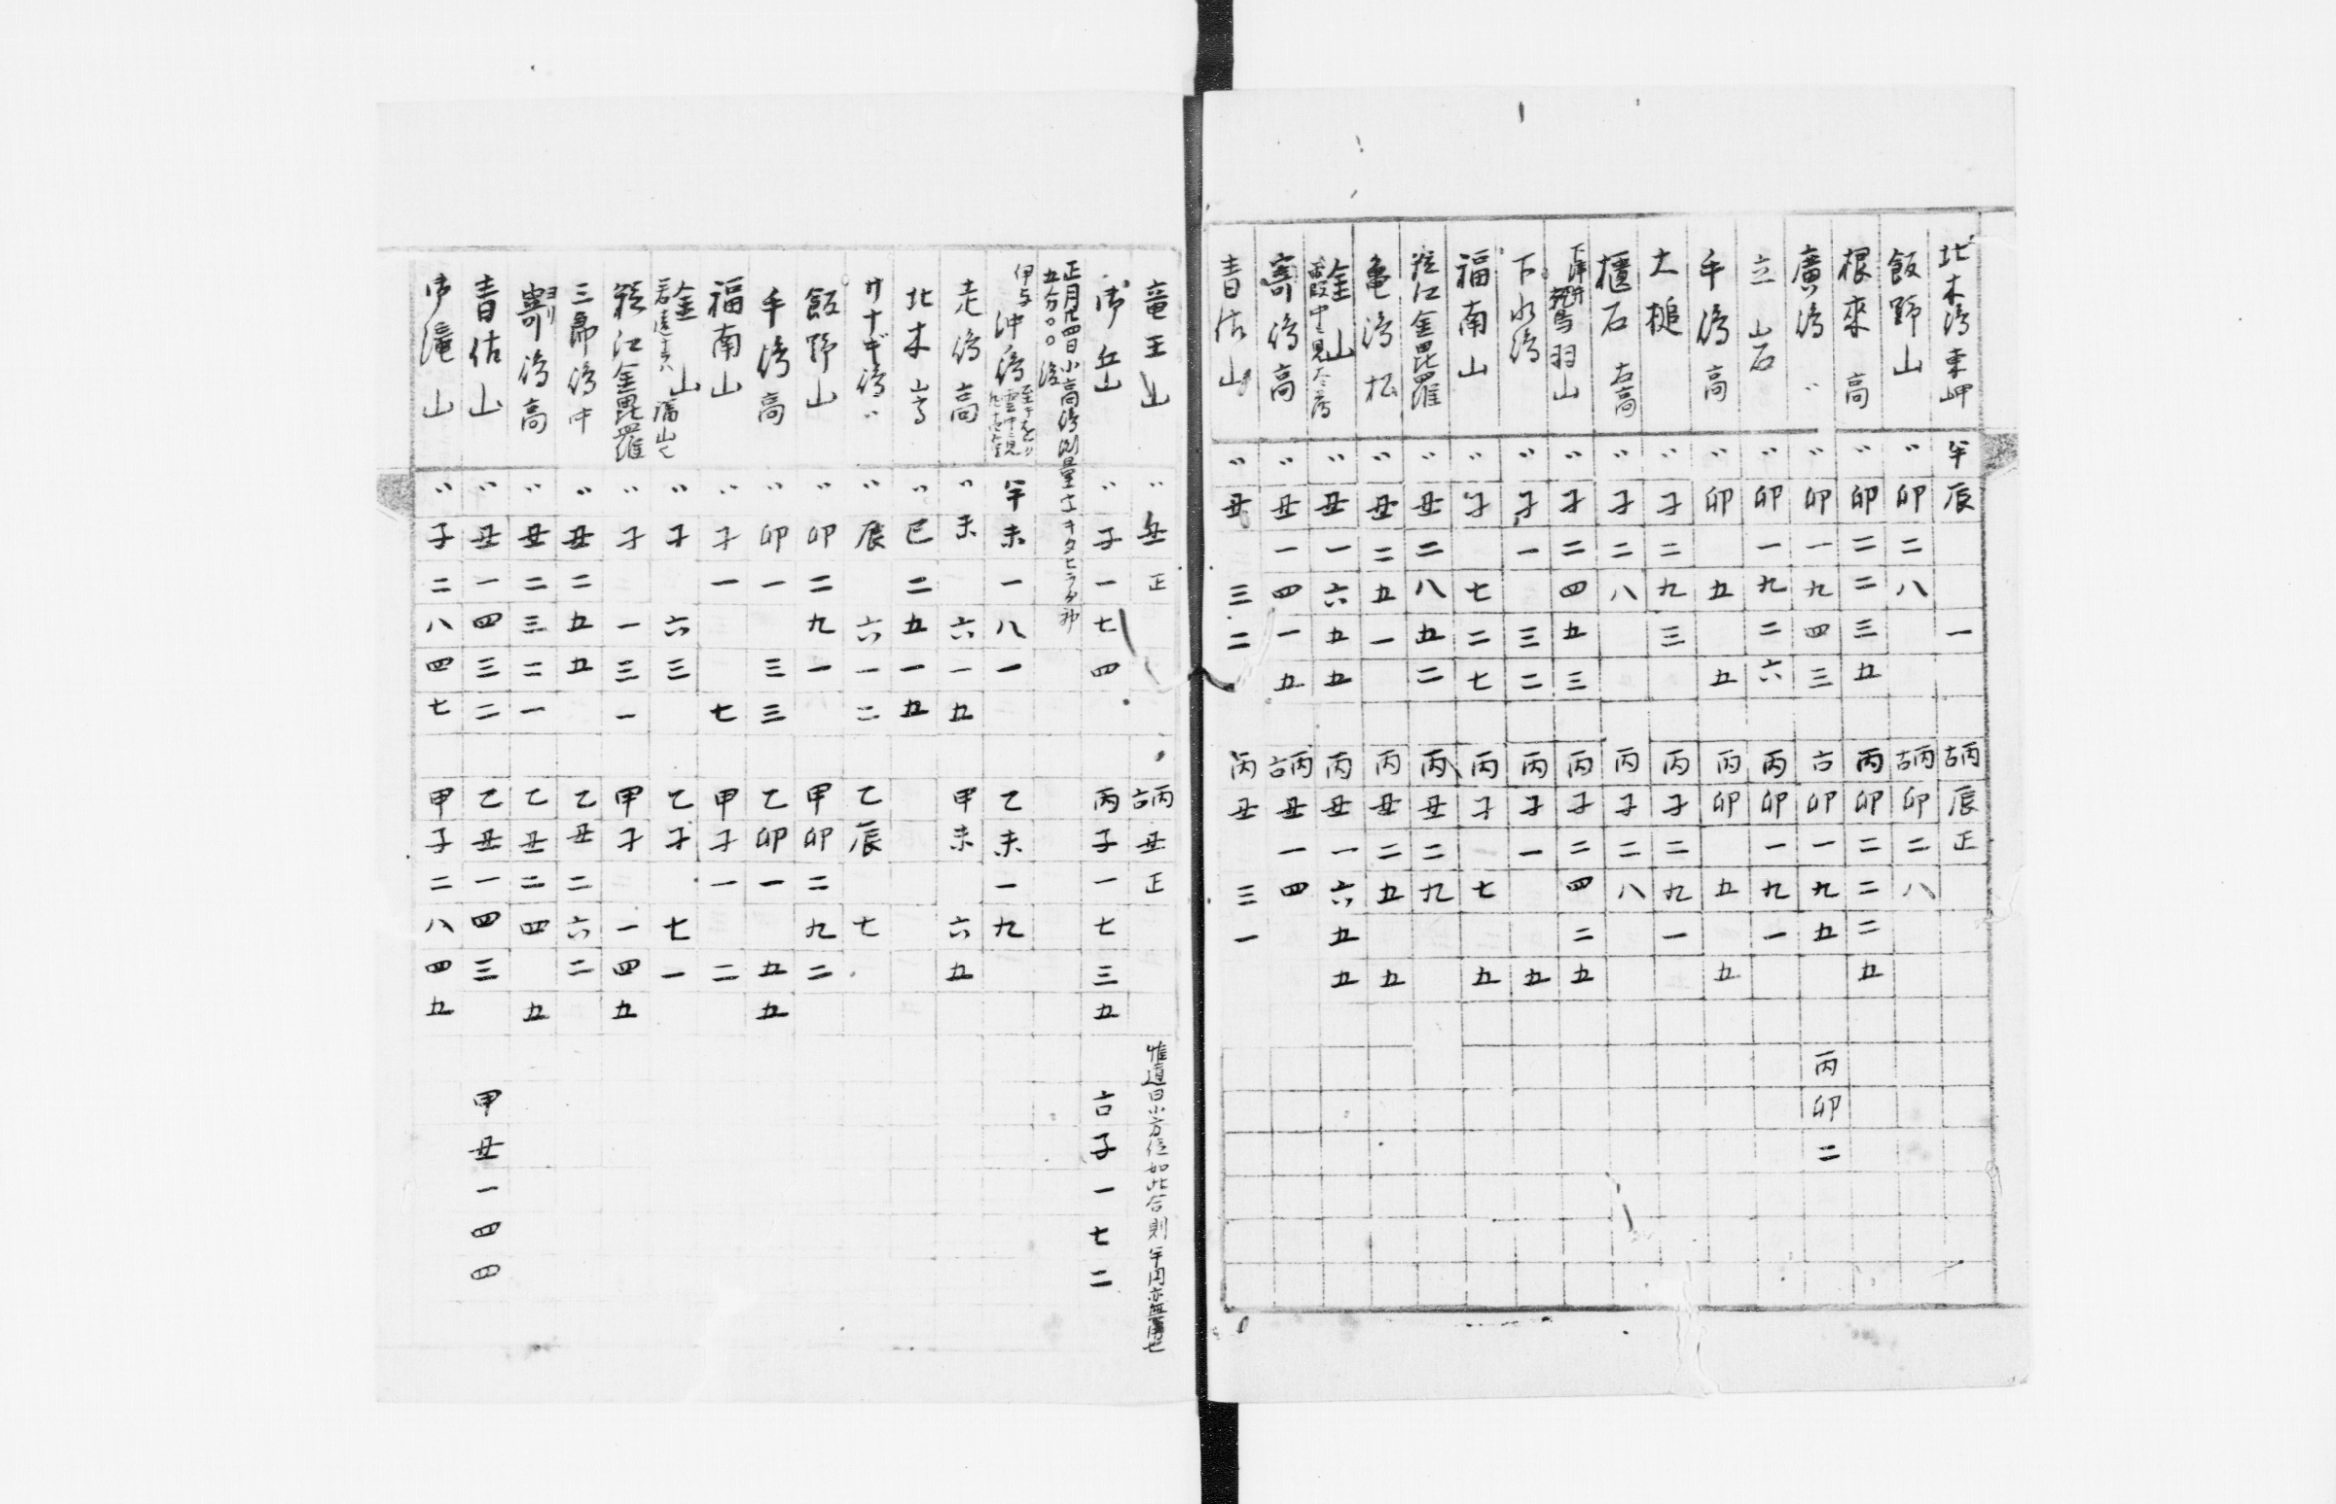 北木嶋東岬 半 辰 一 古丙 辰 正
飯野山 〃 卯 二 八 古丙 卯 二 八
根来 高 〃 卯 二 二 三 五 丙 卯 二 二 二 五
廣嶋 〃 〃 卯 一 九 四 三 古 卯 一 九 五 丙 卯 二
立山石 〃 卯 一 九 二 六 丙 卯 一 九 一
手嶋高 〃 卯 五 五 丙 卯 五 五
大槌 〃 子 二 九 三 丙 子 二 九 一
櫃石 右高 〃 子 二 八 丙 子 二 八
鷲羽山 〃 子 二 四 五 三 丙 子 二 四 二 五
下水嶋 〃 子 一 三 二 丙 子 一 五
福南山 〃 子 七 二 七 丙 子 七 五
江金毘羅 〃 丑 二 八 五 二 丙 丑 二 九
亀嶋松 〃 丑 二 五 一 丙 丑 二 五 五
山 〃 丑 一 六 五 五 丙 丑 一 六 五 五
寄嶋高 〃 丑 一 四 一 五 古丙 丑 一 四
青佐山 〃 丑 三 二 丙 丑 三 一
竜王山 〃 丑 正 古丙 丑 正
丘山 〃 子 一 七 四 丙 子 一 七 三 五 古 子 一 七 二
正月廿四日小高嶋測量
五分〇〇
伊与沖嶋 半 未 一 八 一 乙 未 一 九
走嶋高 〃 未 六 一 五 甲 未 六 五
北木 〃 巳 二 五 一 五
サナギ嶋〃 〃 辰 六 一 二 乙 辰 七
飯野山 〃 卯 二 九 一 甲 卯 二 九 二
手嶋高 〃 卯 一 三 三 乙 卯 一 五 五
福南山 〃 子 一 七 甲 子 一 二
山 〃 子 六 三 乙 子 七 一
江金毘羅 〃 子 一 三 一 甲 子 一 四 五
三郎嶋中 〃 丑 二 五 五 乙 丑 二 六 二
寄嶋高 〃 丑 二 三 二 一 乙 丑 二 四 五
青佐山 〃 丑 一 四 三 二 乙 丑 一 四 三 甲 丑 一 四 四
滝山 〃 子 二 八 四 七 甲 子 二 八 四 五